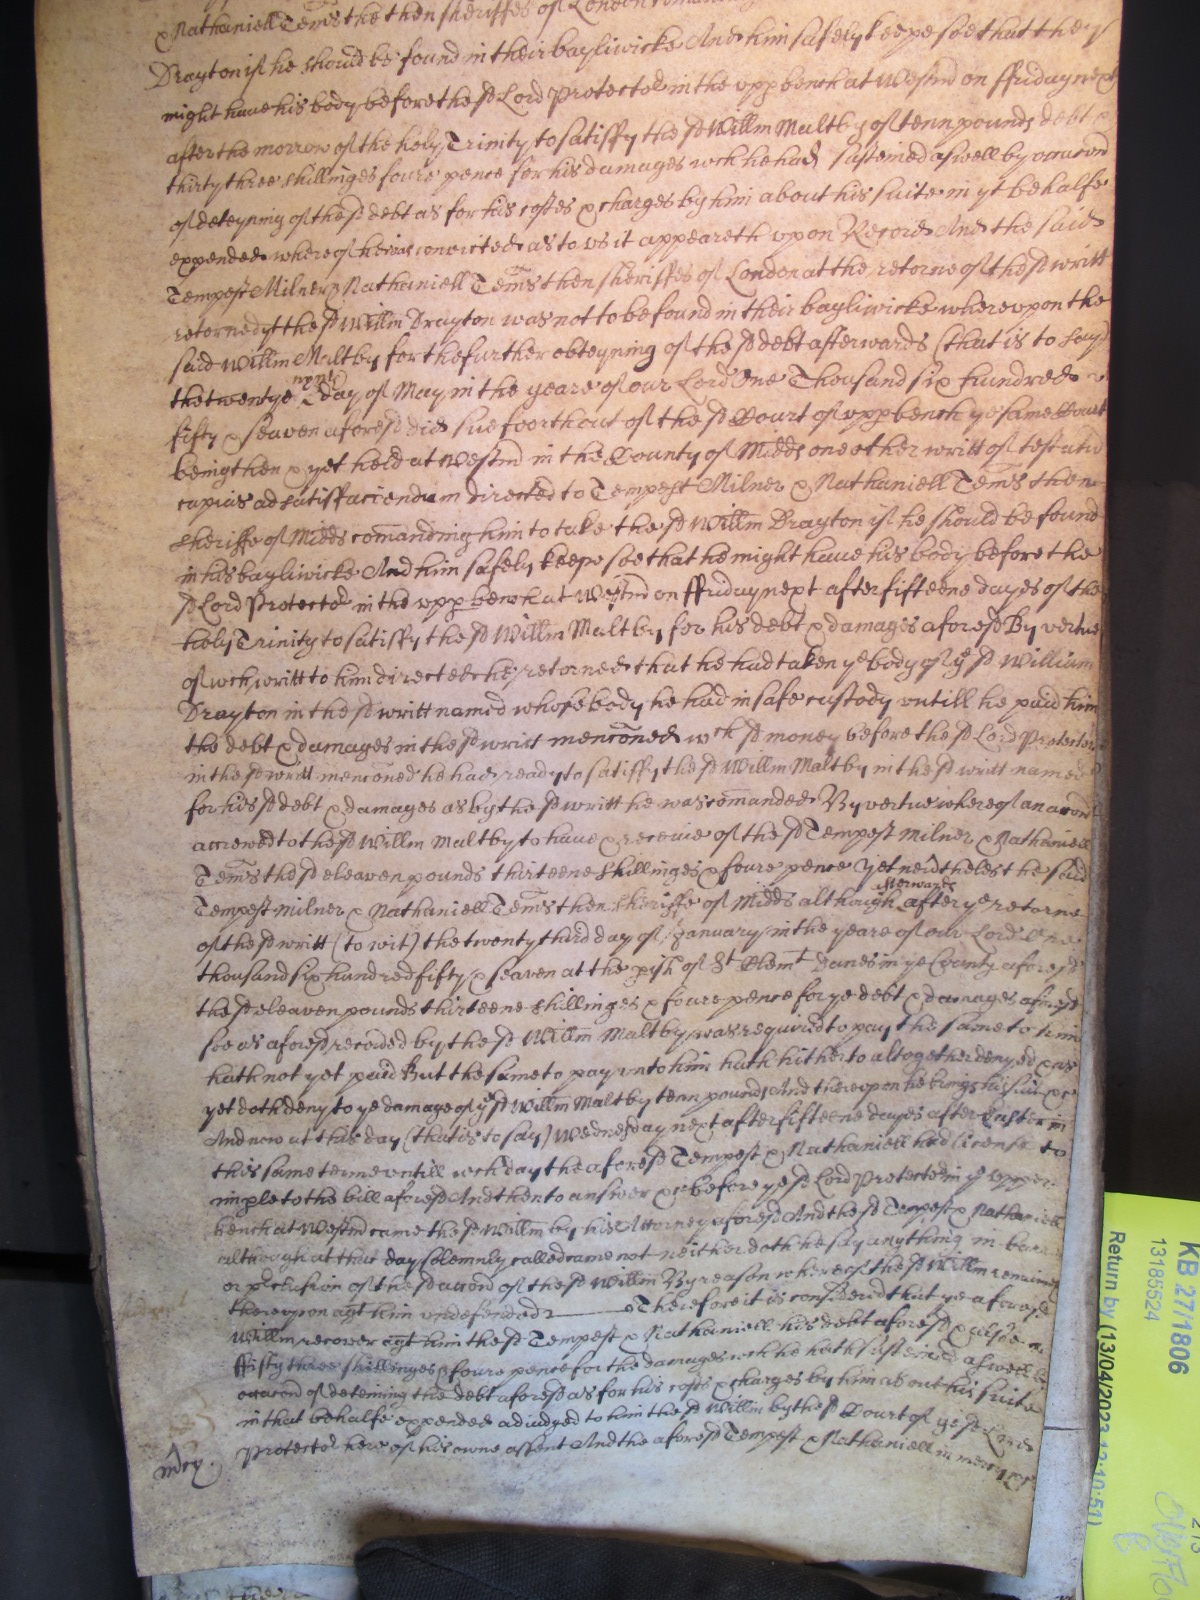 & Nathaniell Tems the then sheriffes of London comanding
Drayton if he should be found in their bayliwicke And him safely keepe soe that they
might have his body before the sd Lord Protector in the upp bench at Westmr on ffriday next
after the morrow of the holy Trinity to satisfy the sd Willm Maltby of tenn pounds debt &
thirty three shillinges foure pence for his damages wch he had susteined aswell by occacon
of deteyning of the sd debt as for his costes & charges by him about his suite in yt behalfe
expended whereof he was convicted as to us it appeareth upon Record And the said
Tempest Milner & Nathaniell Tems then sheriffes of London at the retorne of the sd writt
retorned yt the sd Willm Drayton was not to be found in their bayliwicke whereupon the
said Willm Maltby for the further obteyning of the sd debt afterwards (that is to say)
the twentye nynth day of May in the yeare of our Lord One Thousand six hundred
fifty & seaven aforesd did sue foorth out of the sd Court of upp bench ye same Court
being then & yet held at Westmr in the County of Midds one other writt of testatu
capias ad satisfaciendum directed to Tempest Milner & Nathaniell Tems then
sheriffe of Midds comanding him to take the sd Willm Drayton if he should be found
in his bayliwicke And him safely keepe soe that he might have his body before the
sd Lord Protector in the upp bench at Westmr on ffriday next after fifteene dayes of the
holy Trinity to satisfy the sd Willm Maltby for his debt & damages aforesd By vertue
of wch writt to him directed he retorned that he had taken ye body of ye sd William
Drayton in the sd writt named whose body he had in safe custody untill he paid him
the debt & damages in the sd writt menconed wch sd money before the sd Lord Protector
in the sd writt menconed he had ready to satisfy the sd Willm Maltby in the sd writt named
for his sd debt & damages as by the sd writt he was comanded By vertue whereof an accon
accrewed to the sd Willm Maltby to have & receive of the sd Tempest Milner & Nathaniell
Tems the sd eleaven pounds thirteene shillinges & foure pence Yet neidtheles the said
Tempest Milner & Nathaniell Tems then sheriffe of Midds although afterwards after ye retorne
of the sd writt (to wit) the twenty third day of January in the yeare of our Lord One
thousand six hundred fifty & seaven at the pish of St Clemt Danes in ye County aforesd
the sd eleaven pounds thirteene shillinges & foure pence for ye debt & damages aforesd
soe as aforesd recoved by the sd Willm Maltby was required to pay the same to him
hath not yet paid But the same to pay unto him hath hitherto altogether denyed & as
yet doth deny to ye damage of ye sd Willm Maltby tenn pounds And thereupon he brings his suit &c
And now at this day (that is to say) Wednesday next after fifteene dayes after Easter in
this same terme untill wch day the aforesd Tempest & Nathaniell had license to
imple to the bill aforesd And then to answer &c before ye sd Lord Protector in ye upper
bench at Westmr came the sd Willm by his Attorney aforesd And the sd Tempest & Nathaniell
although at that day solemnly called came not neither doth he say anything in barr
or pclusion of the sd accon of the sd Willm By reason whereof the sd Willm remaines
thereupon agt him undefended Therefore it is considered that ye aforesd
Willm recover agt him the sd Tempest & Nathaniell his debt aforesd & alsoe
ffifty three shillinges & foure pence for the damages wch he hath susteined aswell by
occacon of deteining the debt aforesd as for his costs & charges by him about his suite
in that behalfe expended adjudged to him the sd Willm by the sd Court of ye sd Lord
Protector here of his owne assent And the aforesd Tempest & Nathaniell in mercy &c
mcy.
KB 27/1806
13185524
Return by (13/04/2023 12:10:51)